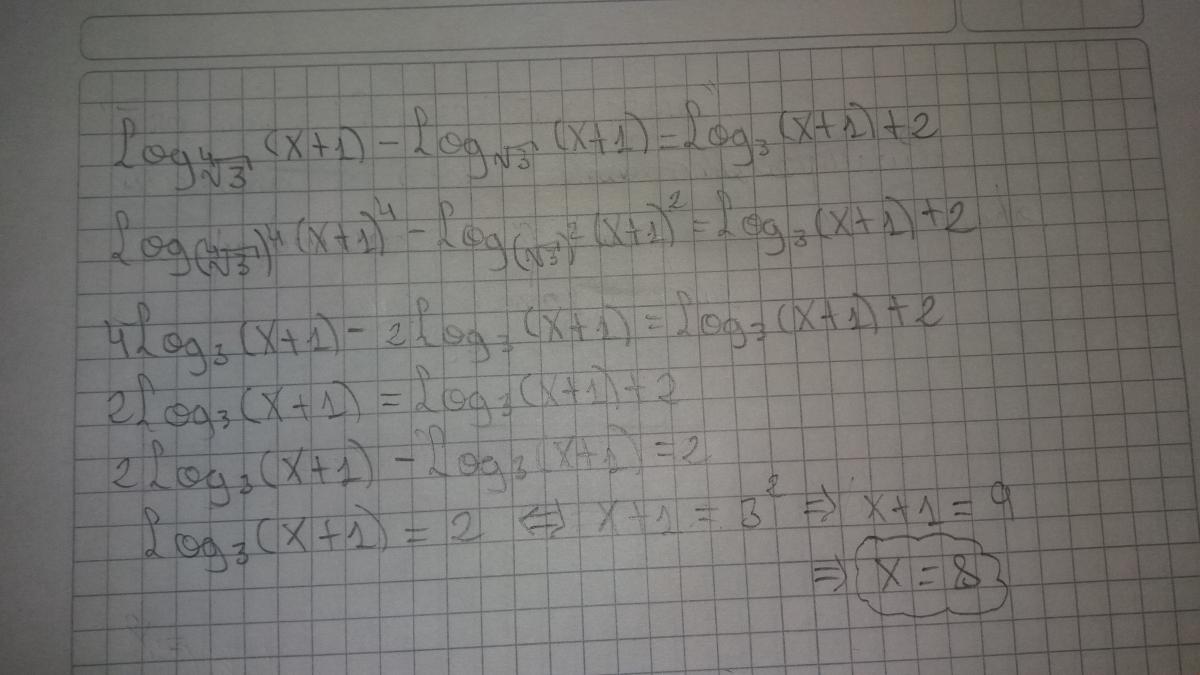 Log_{∜3}(x+1) - Log_{√3}(x+1) = Log_3(x+1) + 2
Log_{(∜3)^4}(x+1)^4 - Log_{(√3)^2}(x+1)^2 = Log_3(x+1) + 2
4Log_3(x+1) - 2Log_3(x+1) = Log_3(x+1) + 2
2Log_3(x+1) = Log_3(x+1) + 2
2Log_3(x+1) - Log_3(x+1) = 2
Log_3(x+1) = 2 ⇔ x+1 = 3^2 ⇒ x+1 = 9
⇒ x = 8